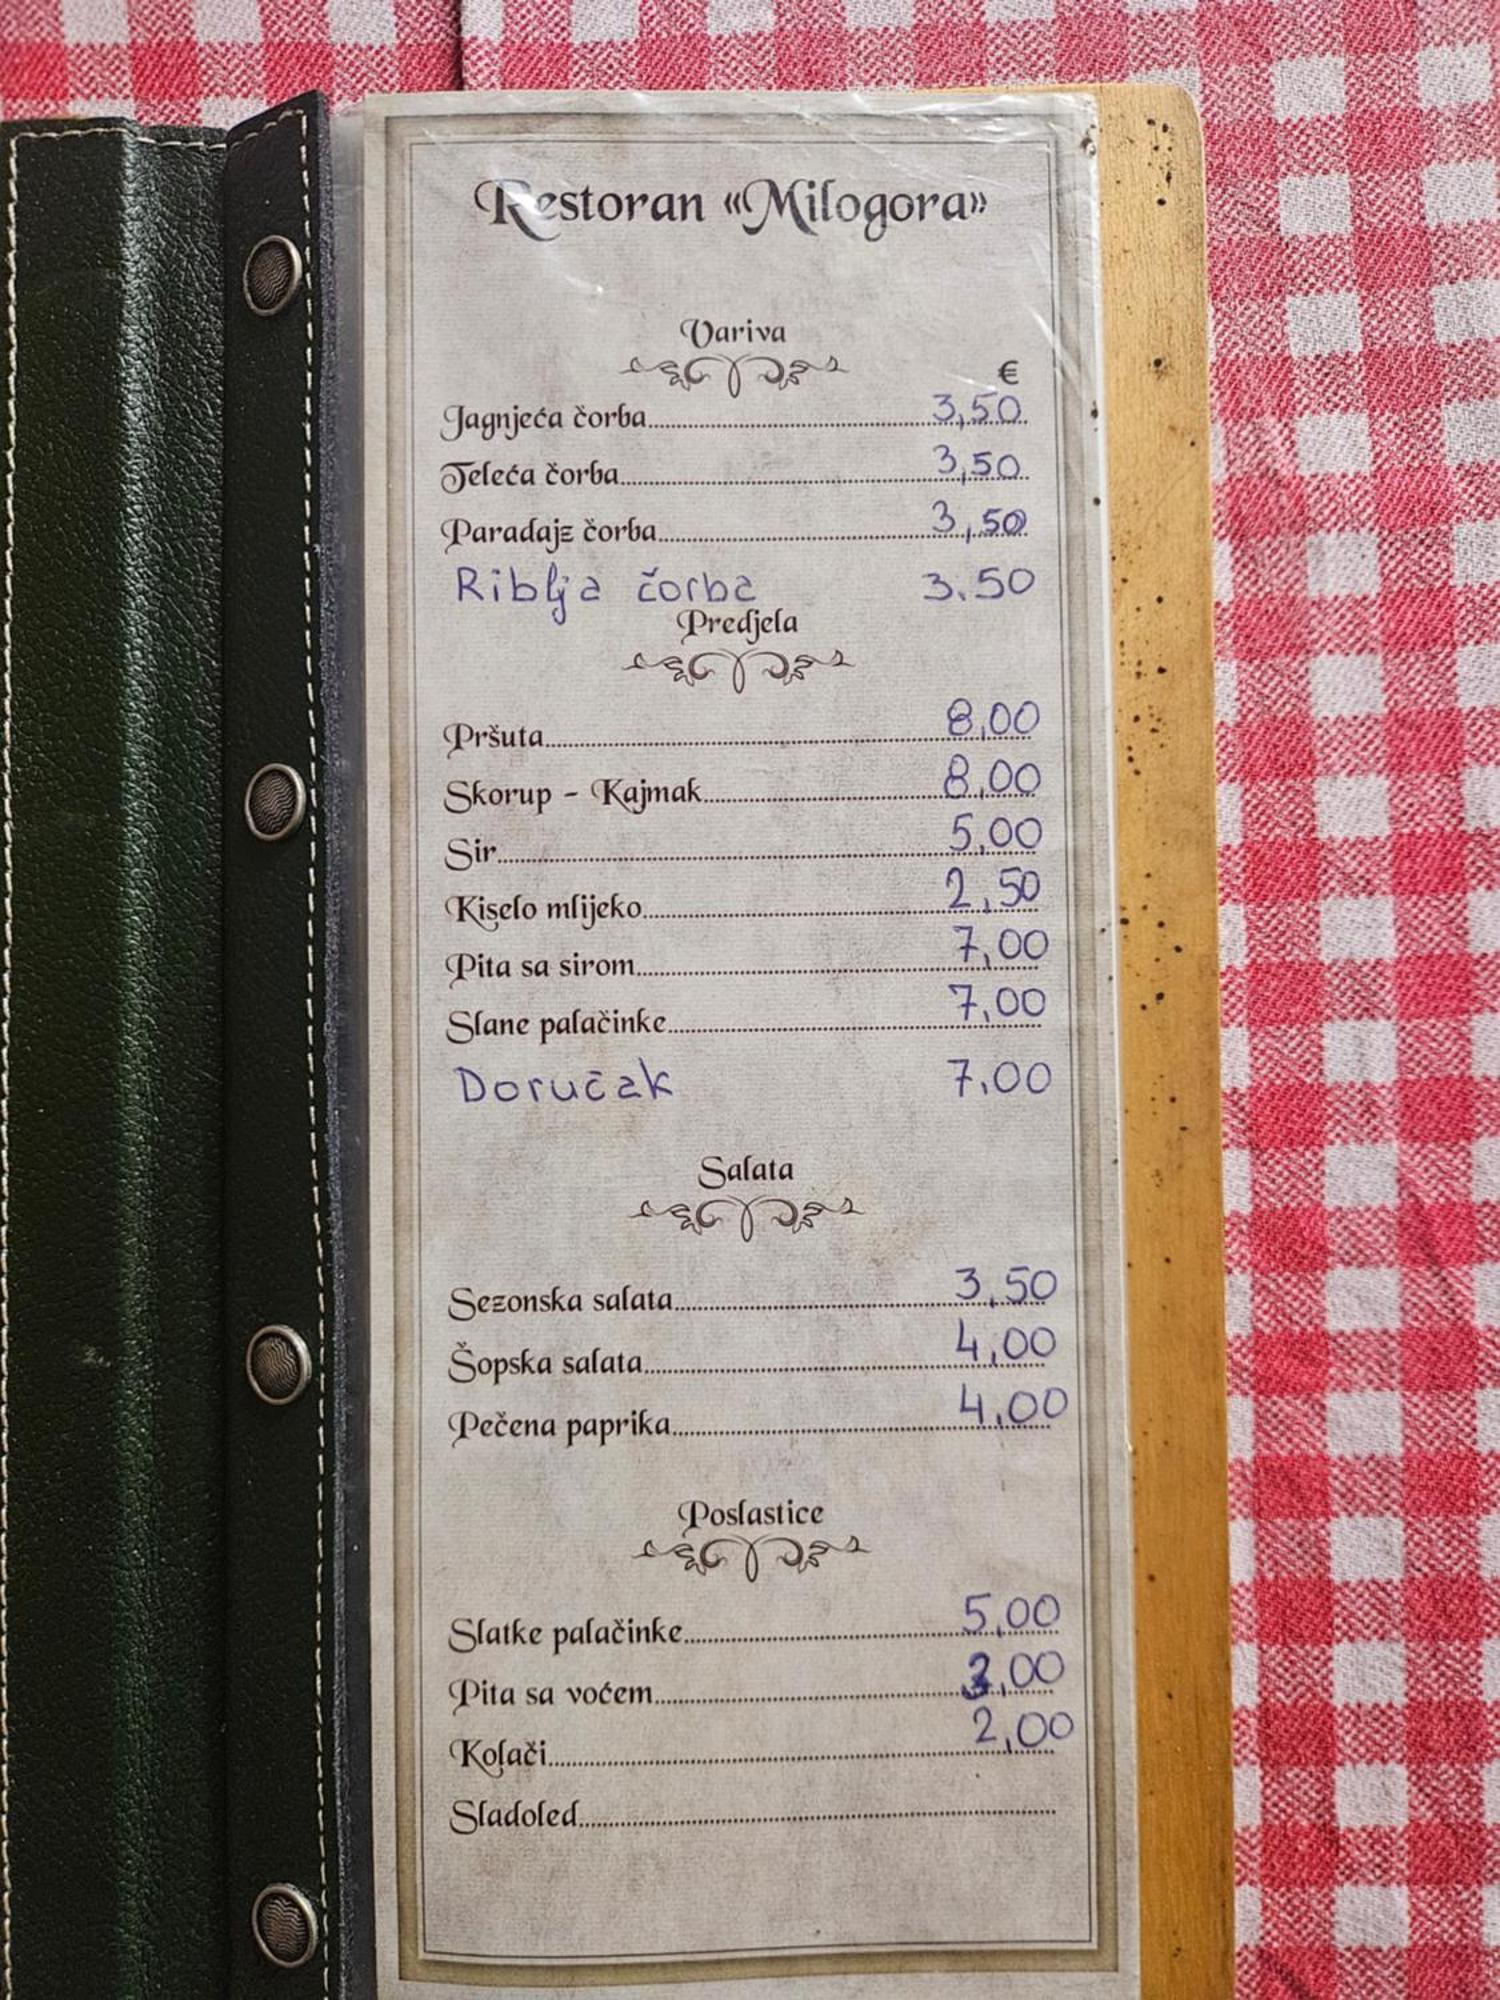 Restoran «Milogora»
Variva
€
Jagnjeća čorba 3,50
Teleća čorba 3,50
Paradajz čorba 3,50
Riblja čorba 3.50
Predjela
Pršuta 8,00
Skorup - Kajmak 8,00
Sir 5,00
Kiselo mlijeko 2,50
Pita sa sirom 7,00
Slane palačinke 7,00
Doručak 7.00
Salata
Sezonska salata 3,50
Šopska salata 4,00
Pečena paprika 4,00
Poslastice
Slatke palačinke 5,00
Pita sa voćem
Kolači 2,00
Sladoled